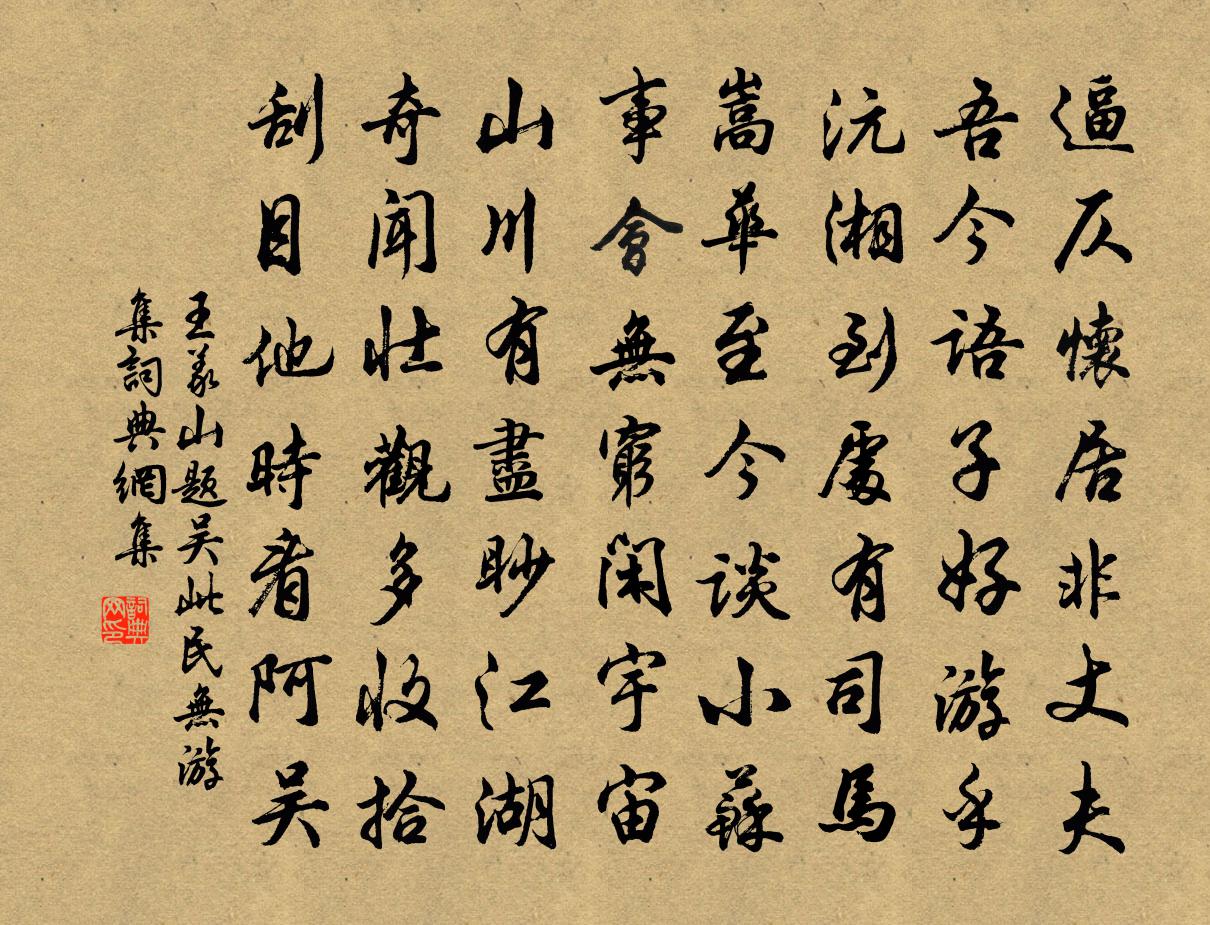 逼仄懷居非丈夫
吾今語子好游乎
沅湘到處有司馬
嵩華至今談小蘇
事會無窮閑宇宙
山川有盡眇江湖
奇聞壯觀多收拾
刮目他時看阿吴
王義山題吴此民無游
集詞典網集
詞典
网印